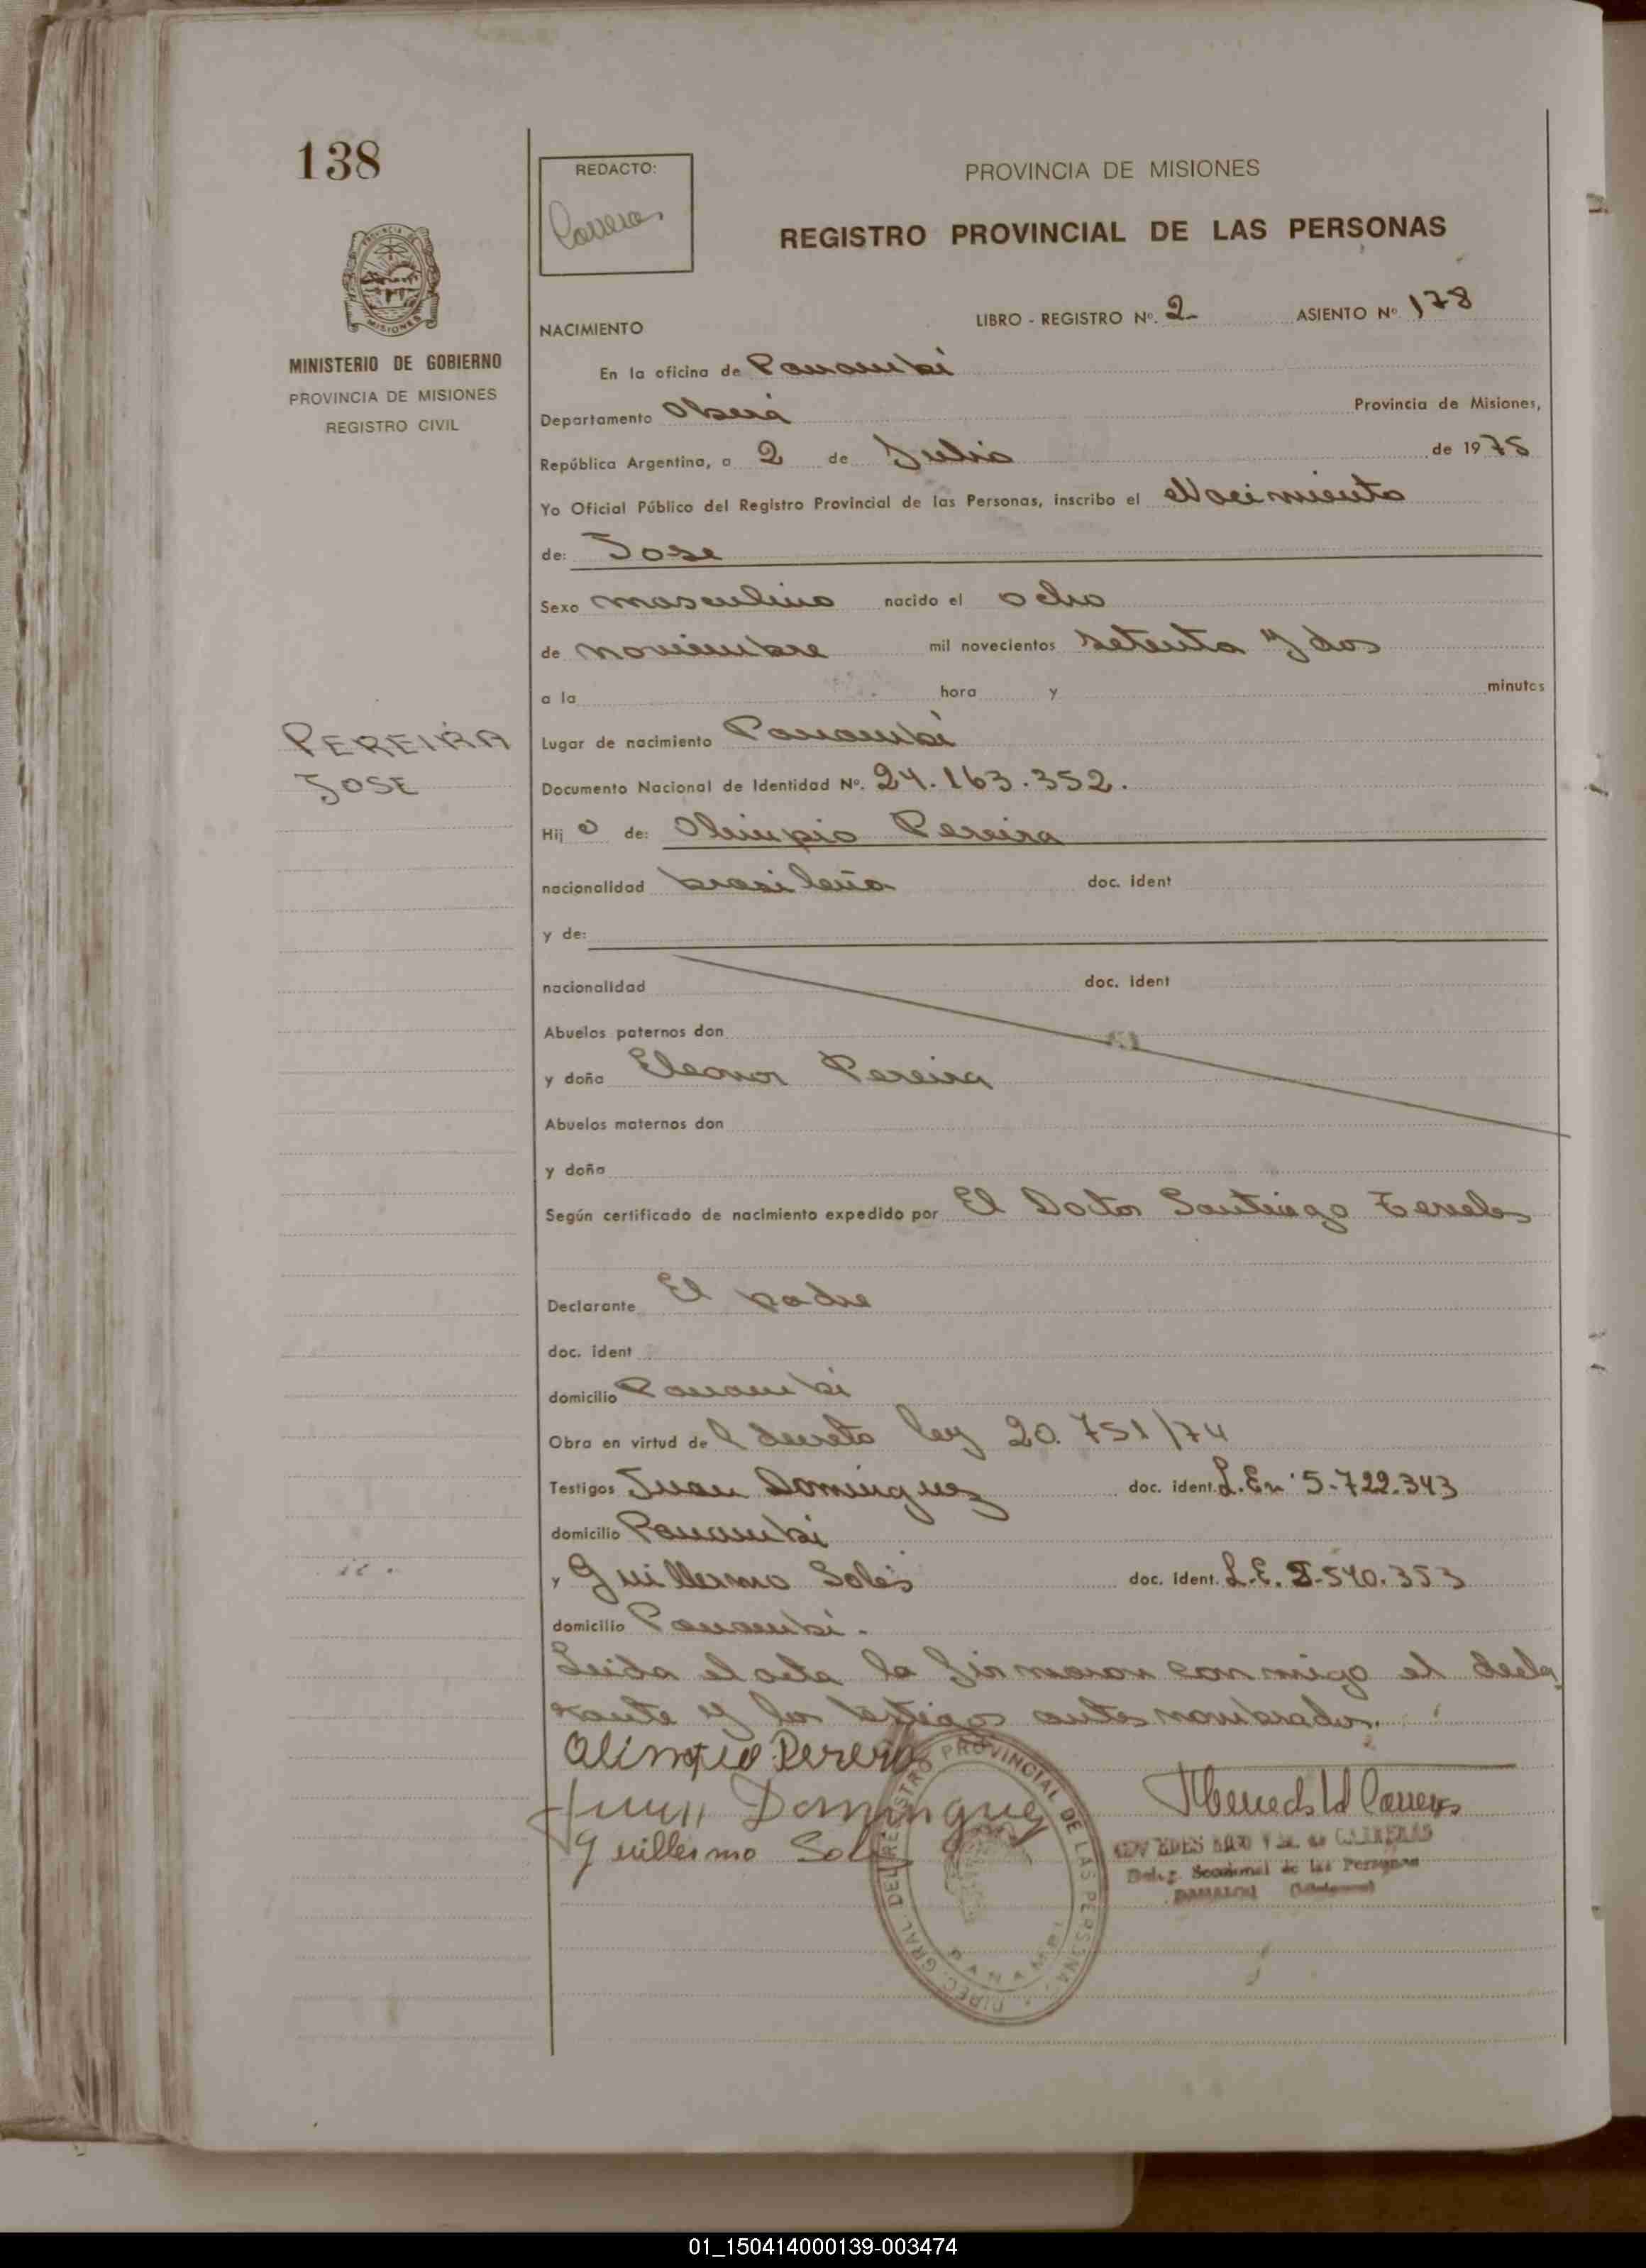 138
REDACTO:
Carreras
PROVINCIA DE MISIONES
REGISTRO PROVINCIAL DE LAS PERSONAS
MINISTERIO DE GOBIERNO
PROVINCIA DE MISIONES
REGISTRO CIVIL
NACIMIENTO LIBRO - REGISTRO Nº. 2 ASIENTO Nº 178
En la oficina de Panambí
Departamento Oberá Provincia de Misiones,
República Argentina, a 2 de Julio de 1975
Yo Oficial Público del Registro Provincial de las Personas, inscribo el Nacimiento
de: Jose
Sexo masculino nacido el ocho
de noviembre mil novecientos setenta y dos
a la hora y minutos
PEREIRA
JOSE
Lugar de nacimiento Panambí
Documento Nacional de Identidad Nº. 24.163.352.
Hij o de: Olimpio Pereira
nacionalidad brasileña doc. ident
y de:
nacionalidad doc. ident
Abuelos paternos don
y doña Eleonor Pereira
Abuelos maternos don
y doña
Según certificado de nacimiento expedido por El Doctor Santiago
Declarante El padre
doc. ident
domicilio Panambi
Obra en virtud de l decreto ley 20.751/74
Testigos Juan Dominguez doc. ident. L.E. 5.722.343
domicilio Panambi
y Guillermo Solis doc. ident. L.E. 540.353
domicilio Panambi.
Leida el acta la firmaron conmigo el decla
rante y los testigos antes nombrados.
Olimpio Pereira
Juan Dominguez
Guillermo Solis
DIREC. GRAL. DEL REGISTRO PROVINCIAL DE LAS PERSONAS
PANAMBI
de CARRERAS
Deleg. Seccional de las Personas
PANAMBI (Misiones)
01_150414000139-003474